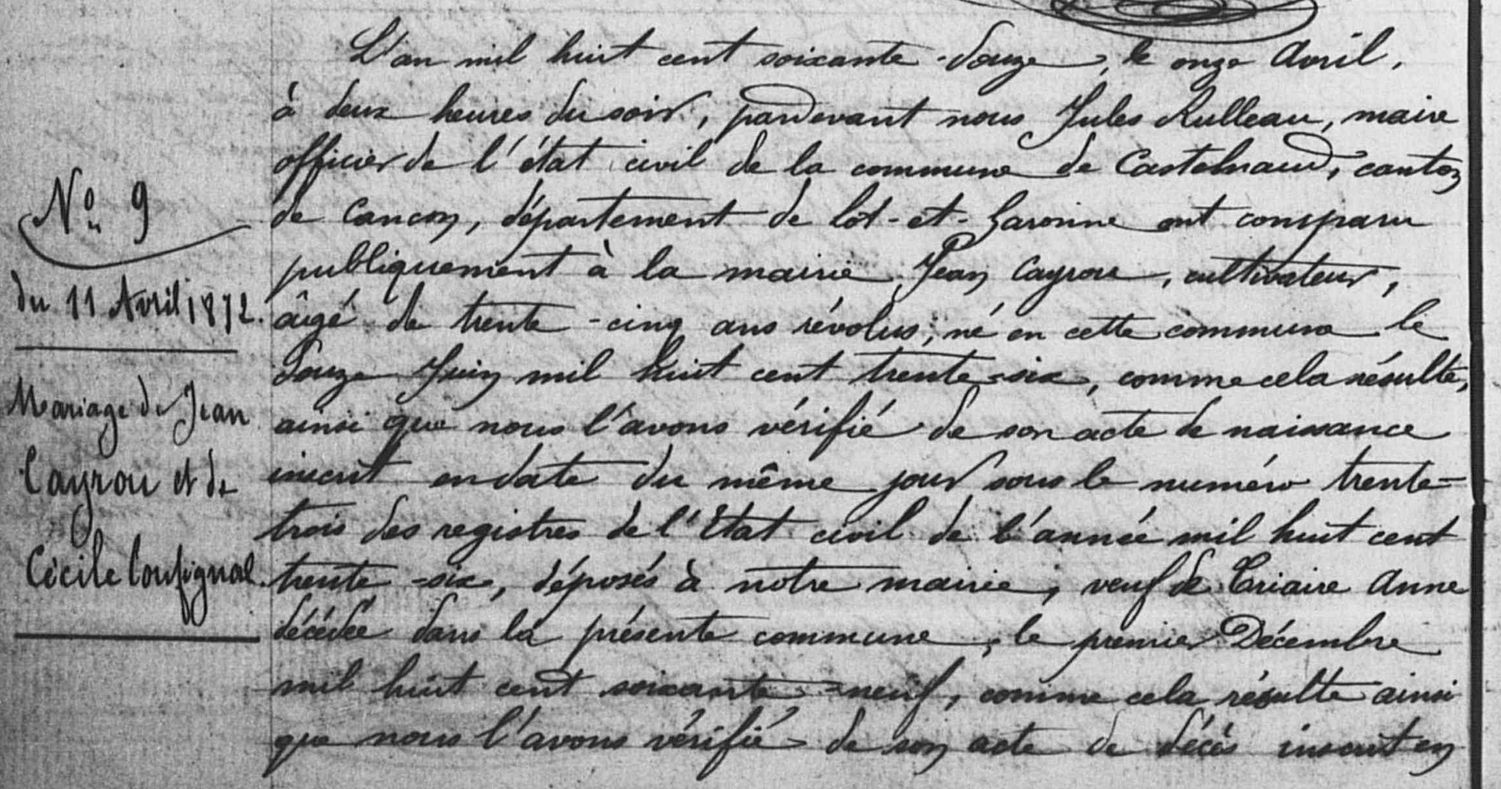 N° 9
du 11 Avril 1872.
Mariage de Jean
Cayrou et de
Cécile Coufignal.
L'an mil huit cent soixante-douze, le onze Avril,
à deux heures du soir, pardevant nous Jules Rulleau, maire
officier de l'état civil de la commune de Castelnaud, canton
de Cancon, département de Lot-et-Garonne ont comparu
publiquement à la mairie Jean Cayrou, cultivateur,
âgé de trente-cinq ans révolus; né en cette commune le
douze Juin mil huit cent trente-six, comme cela résulte,
ainsi que nous l'avons vérifié de son acte de naissance
inscrit en date du même jour sous le numéro trente-
trois des registres de l'État civil de l'année mil huit cent
trente-six, déposés à notre mairie, veuf de Criaire Anne
décédée dans la présente commune, le premier Décembre
mil huit cent soixante-neuf, comme cela résulte ainsi
que nous l'avons vérifié de son acte de décès inscrit en